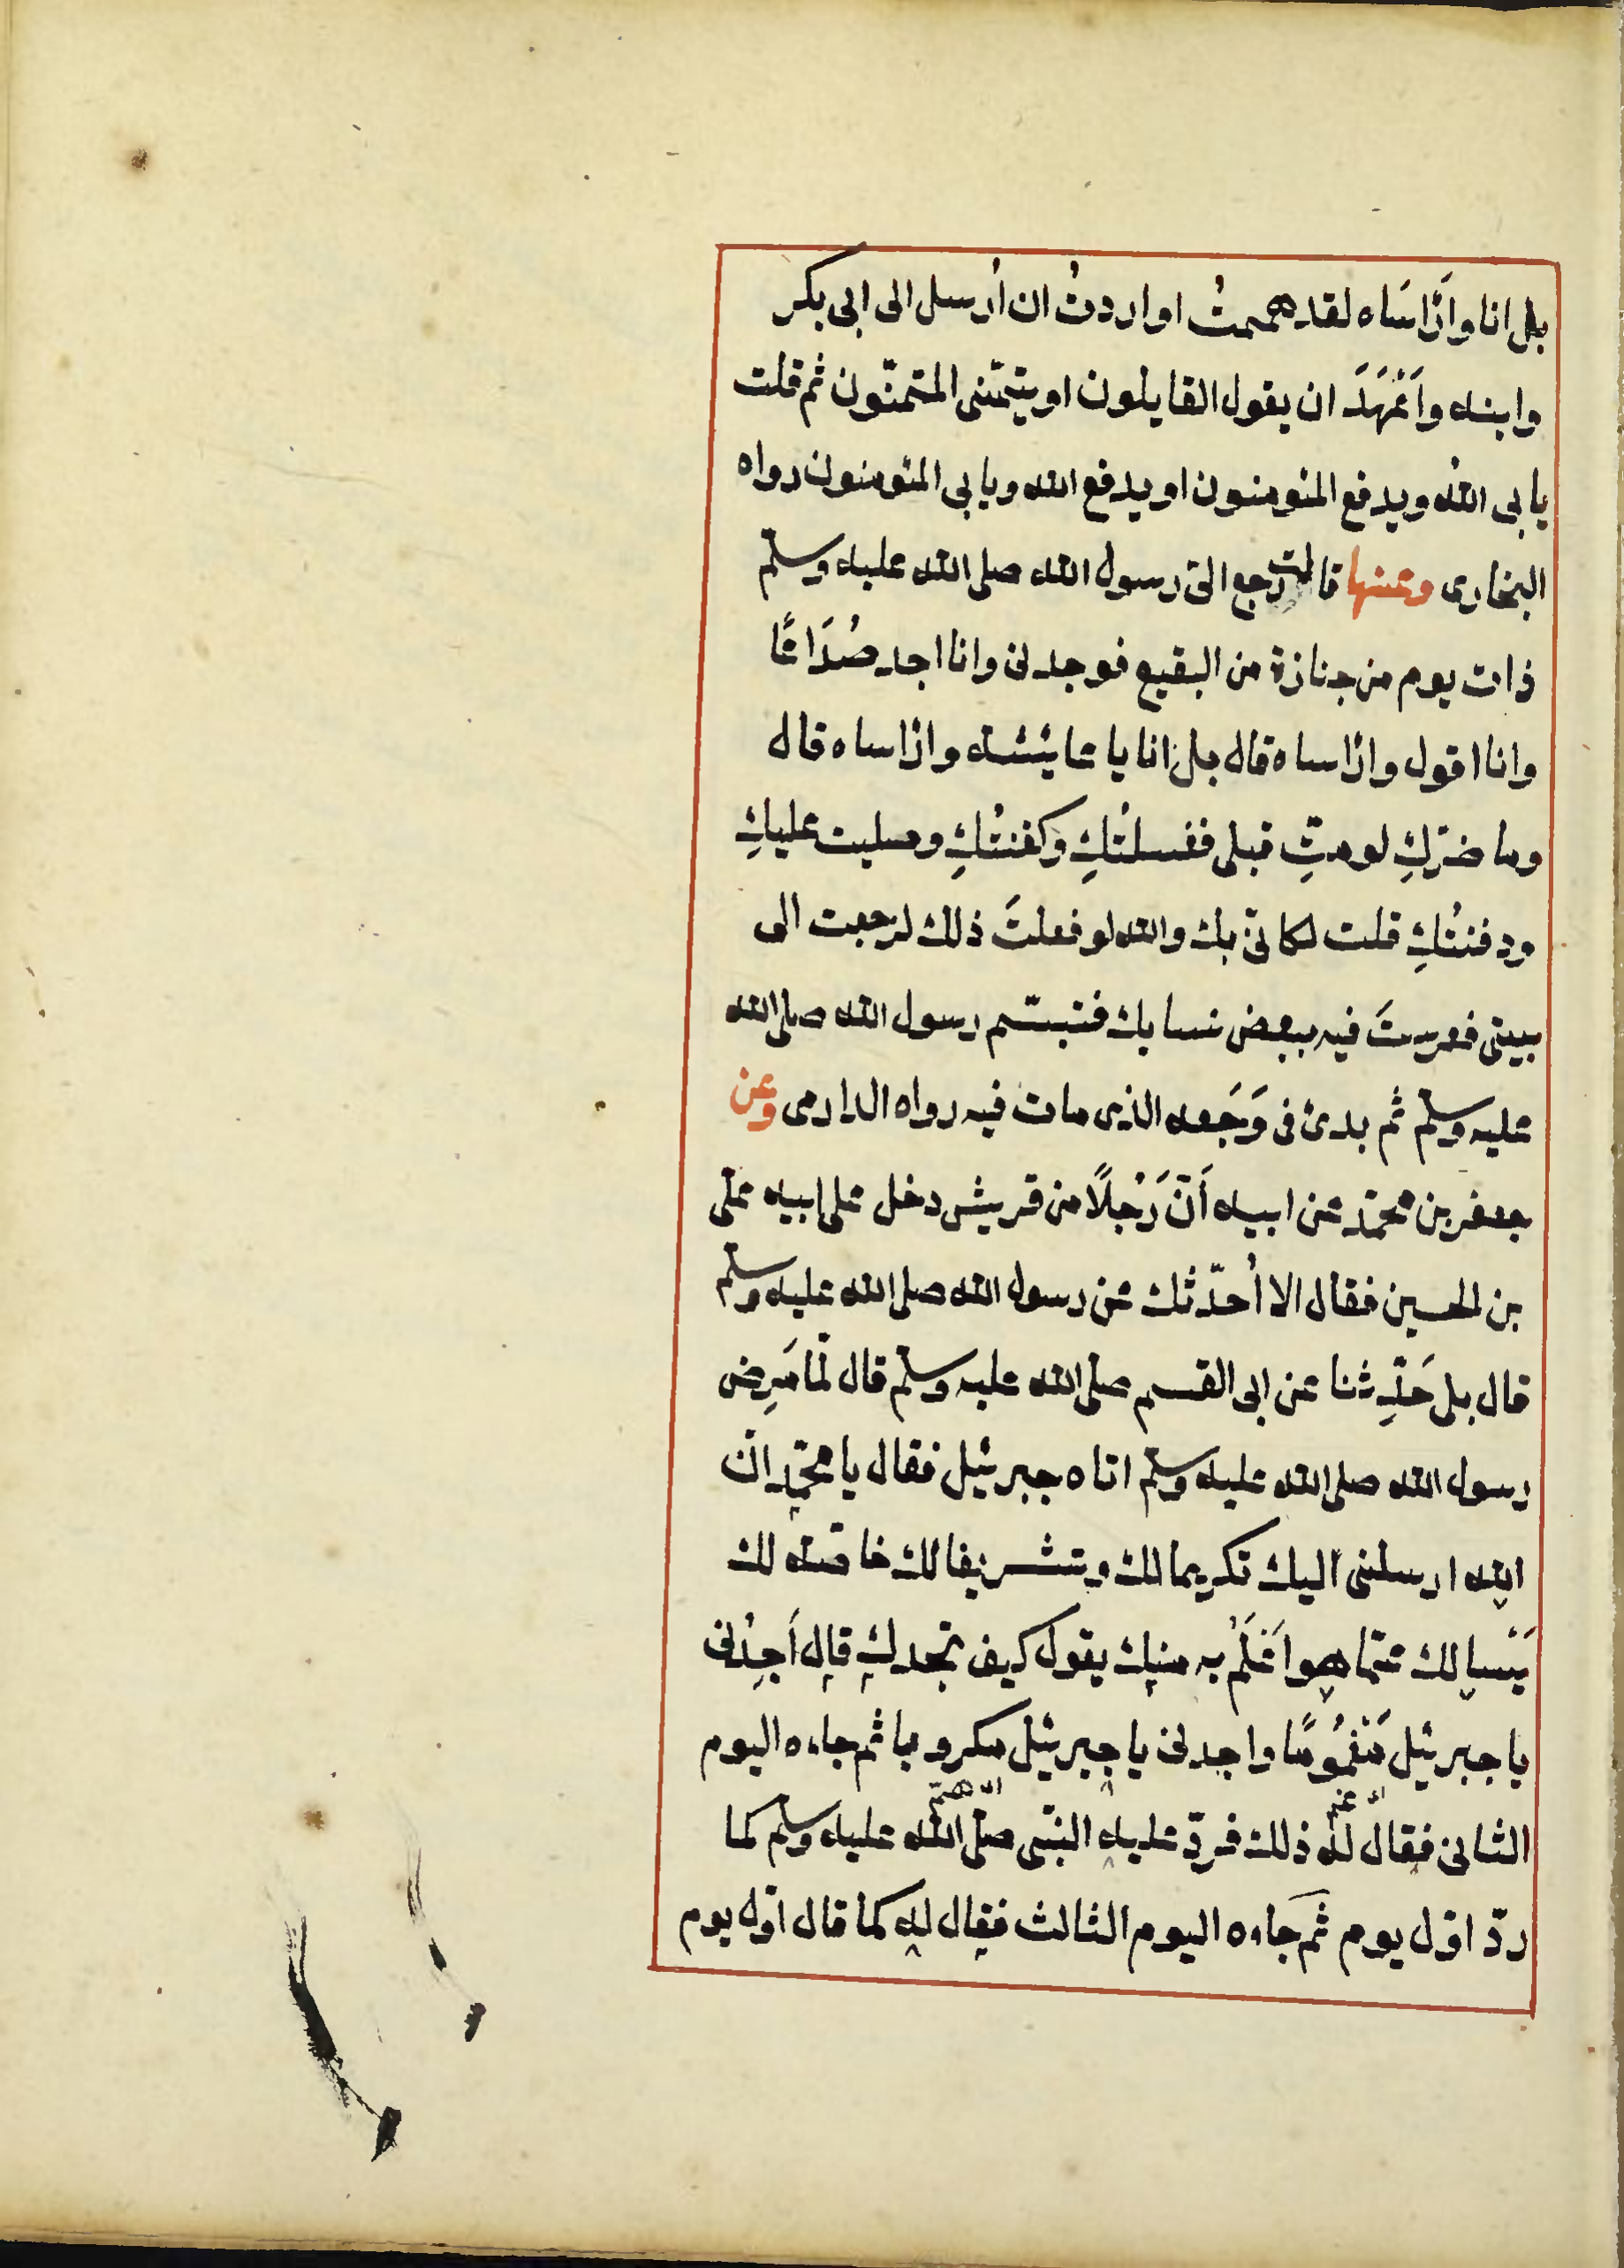 بل انا وارَأسَاه لقد هممتُ او اردتُ ان أرسل الى ابى بكر
وابنه واَعْهَدَ ان يقول القايلون او يتمَنّى المتمنّون ثم قلت
يابى اللهُ ويدفع المئومنون او يدفع الله ويابى المئومنون رواه
البخارى وعنها قالت رجع الىّ رسول الله صلى الله عليه وسلم
ذات يوم من جنازة من البقيع فوجدنى وانا اجد صُدَاعًا
وانا اقول وارأساه قال بل انا يا عايشئة وارأساه قال
وما ضرّكِ لو متِّ قبلى فغسلتُكِ وكفنتُكِ وصليت عليكِ
ودفنتُكِ قلت لكانّى بك والله لو فعلتَ ذلك لرجعت الى
بيتى فعرستَ فيه ببعض نسايك فتبسّم رسول الله صلى الله
عليه وسلم ثم بدئ فى وَجَعه الذى مات فيه رواه الدارمى وعن
جعفر بن محمّد عن ابيه أَنّ رَجُلًا من قريش دخل على ابيه على
بن الحسين فقال الا أُحدّثك عن رسول الله صلى الله عليه وسلم
قال بل حَدِّثنا عن ابى القسم صلّى الله عليه وسلم قال لمّا مَرِض
رسول الله صلى الله عليه وسلم اتاه جبرئيل فقال يا محمّد انّ
الله ارسلنى اليك تكريما لك وتشريفا لك خاصّة لك
يَسْئالك عمّا هو اَعْلَمُ به منك يقول كيف تجدك قال أَجِدُنى
يا جبرئيل مَغْمُومًا واجدنى يا جبرئيل مكروبا ثم جاءه اليوم
الثانى فقال له ذلك فردّ عليه النّبى صلّى الله عليه وسلم كما
ردّ اوّل يوم ثم جاءه اليوم الثالث فقال له كما قال اوّل يوم